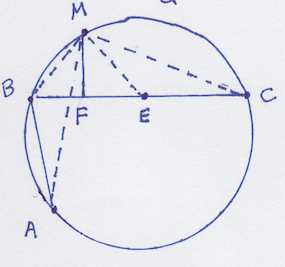 M
B
F
E
C
A